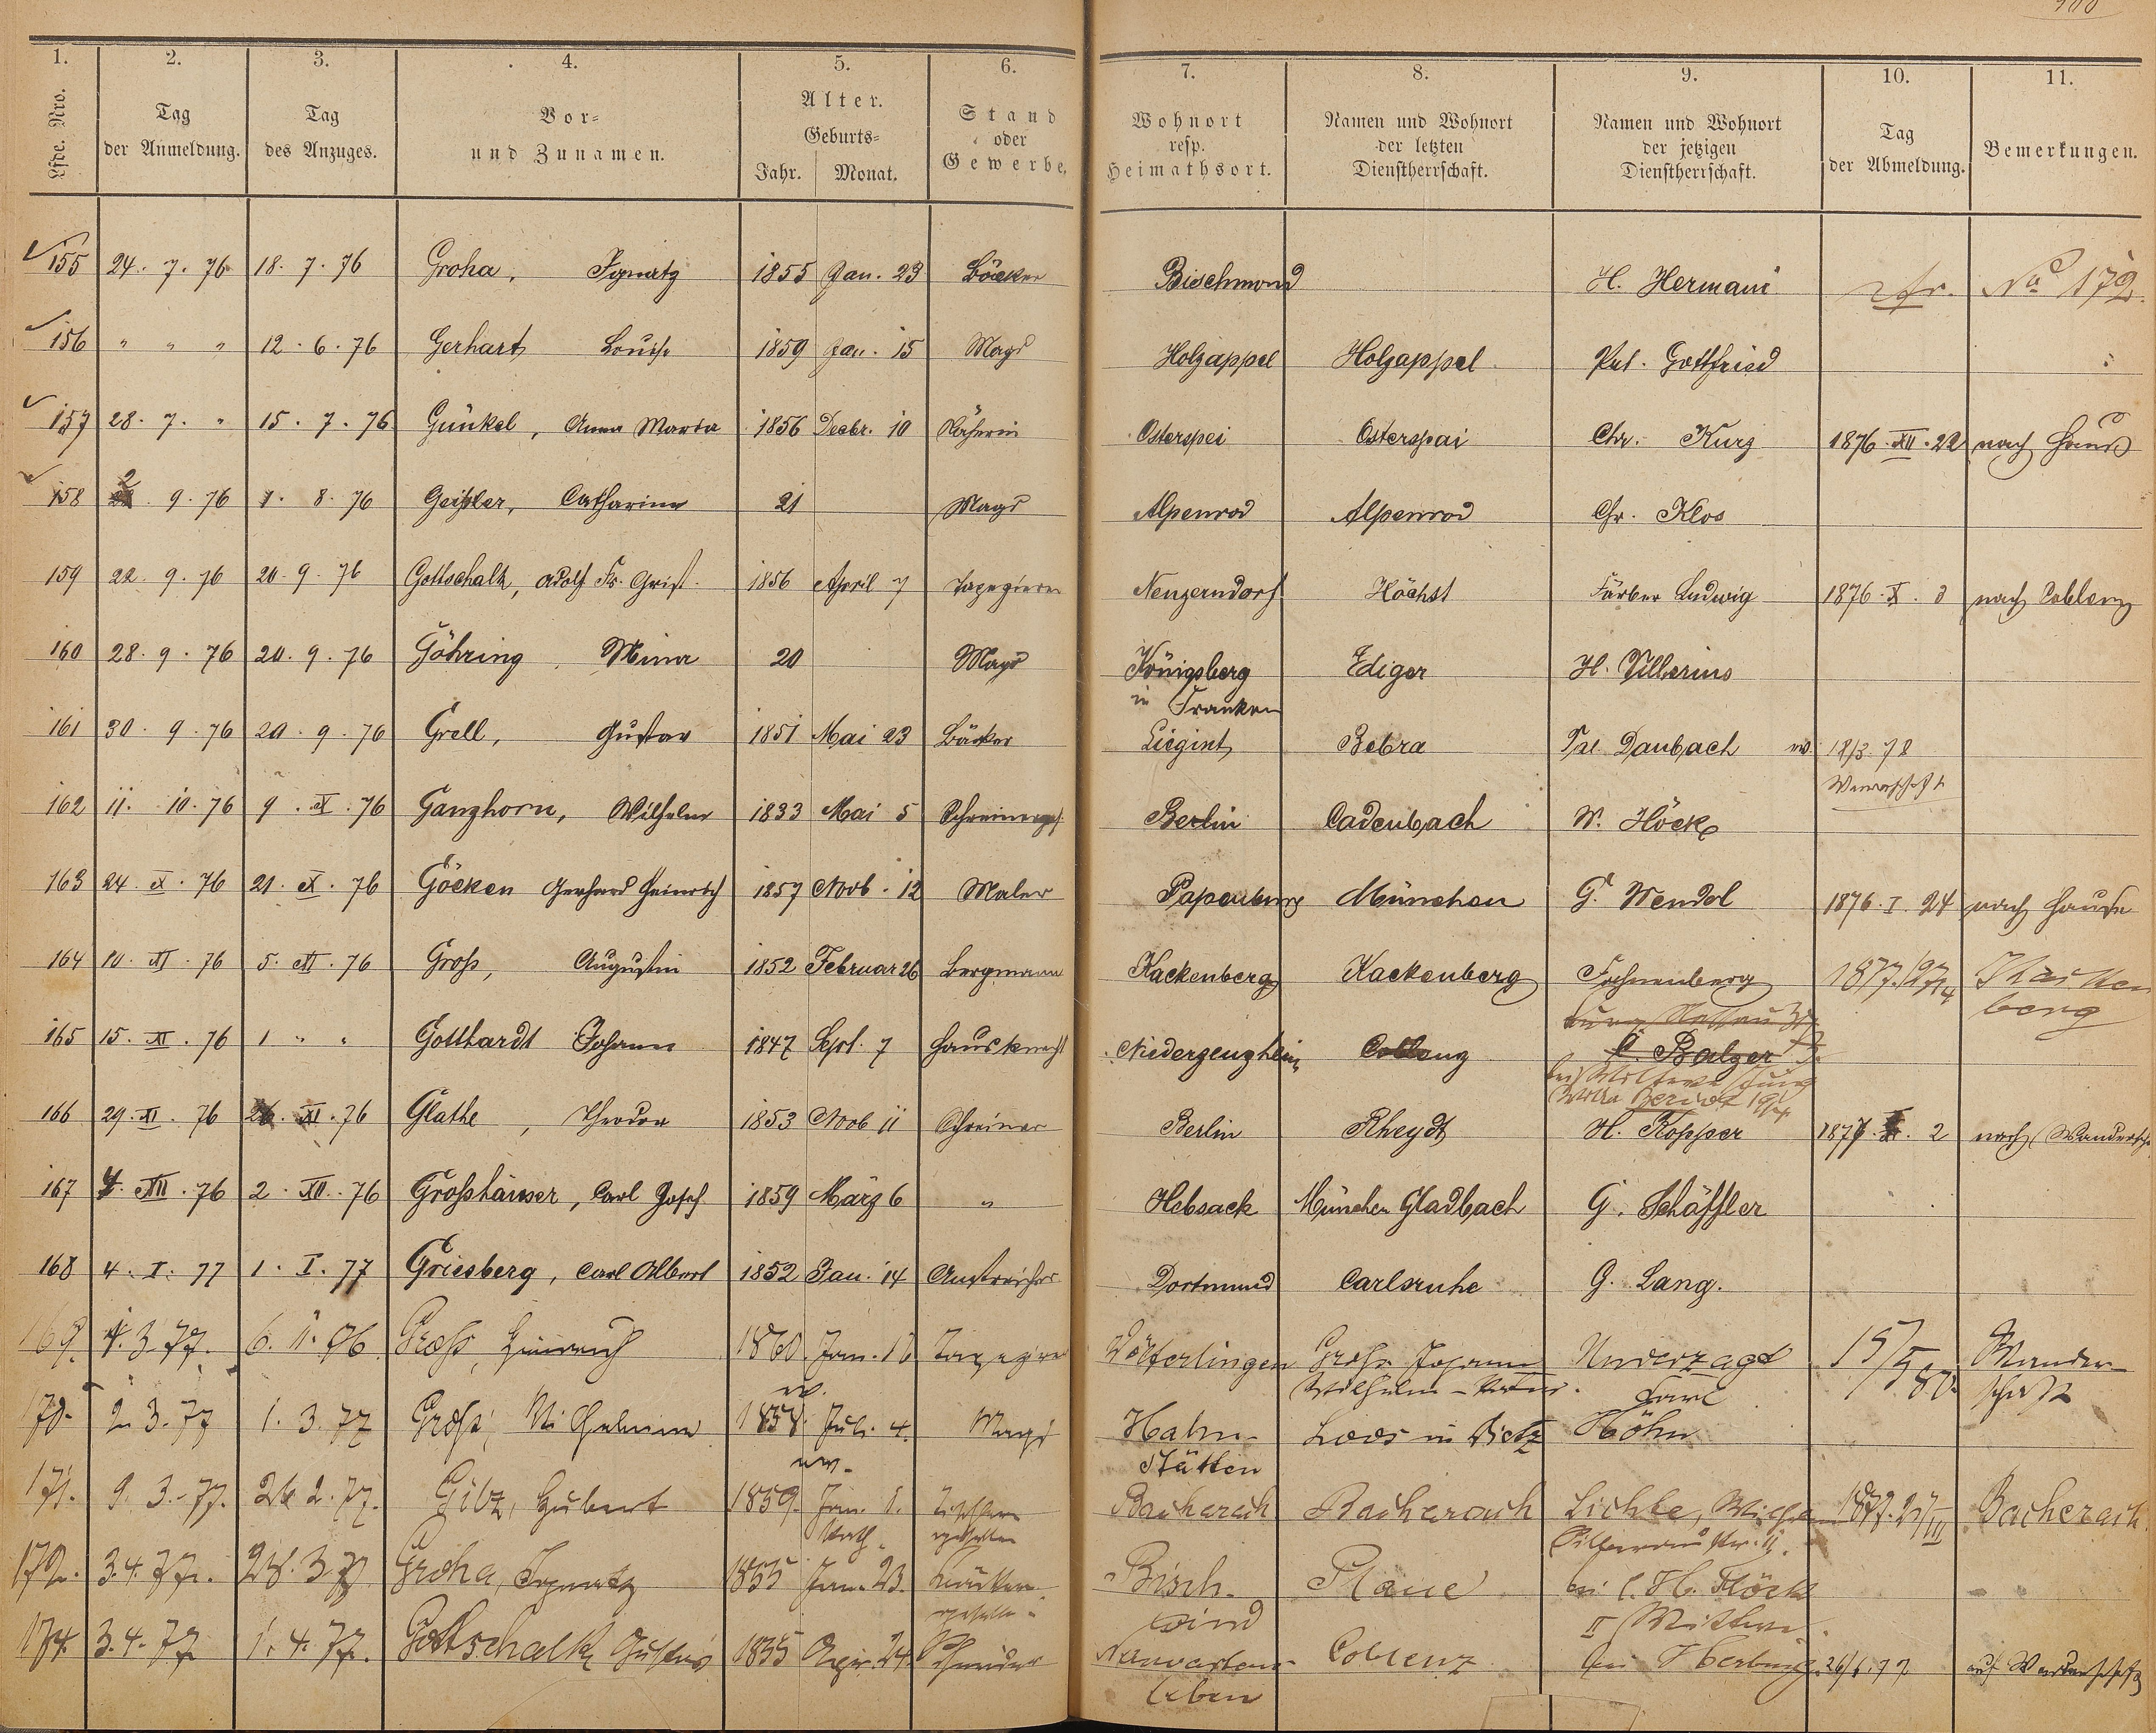 1. 2. 3. 4. 5. 6. 7. 8. 9. 10. 11.
Lfde. Nro. Tag der Anmeldung. Tag des Anzuges. Vor- und Zunamen. Alter. Geburts- Jahr. Monat. Stand oder Gewerbe. Wohnort resp. Heimathsort. Namen und Wohnort der letzten Dienstherrschaft. Namen und Wohnort der jetzigen Dienstherrschaft. Tag der Abmeldung. Bemerkungen.
155 24. 7. 76 18. 7. 76 Groha, Ignatz 1855 Jan. 23 Bäcker Bischmond H. Hermani No 172.
156 " " " 12. 6. 76 Gerhart, Louise 1859 Jan. 15 Magd Holzappel Holzappel Gottfried
157 28. 7. " 15. 7. 76 Günkel, Anna Maria 1856 Decbr. 10 Näherin Osterspei Osterspai Chr. Kurz 1876. XII. 22 nach Haus
158 2 9. 76 1. 8. 76 Geißler, Catharina 21 Magd Alpenrod Alpenrod Chr. Klos
159 22. 9. 76 20. 9. 76 Gottschalk, Adolf Fr. 1856 April 7 Tapezierer Nenzerndorf Höchst Färber Ludwig 1876. X. 3 nach Coblenz
160 28. 9. 76 20. 9. 76 Göhring, Mina 20 Magd Königsberg Ediger H.
in Franken
161 30. 9. 76 20. 9. 76 Grell, Gustav 1851 Mai 23 Bäcker Liegint Bebra Daubach 18/3. 78
162 11. 10. 76 9. X. 76 Ganzhorn, Wilhelm 1833 Mai 5 Schreinerges. Berlin Cadenbach W. Höck
163 24. X. 76 21. X. 76 Göcken Gerhard Heinrich 1857 Novb. 12 Maler Papenburg München G. Wendel 1876. I. 24 nach Hause
164 10. XI. 76 5. XI. 76 Groß, Augustin 1852 Februar 26 Bergmann Kackenberg Kackenberg 1877. 27/4
berg
165 15. XI. 76 1 " " Gotthardt Johann 1847 Sept. 7 Hausknecht Niederzeuzheim Coblenz C. Balzer
166 29. XI. 76 26. XI. 76 Glathe, Theodor 1853 Novb 11 Schreiner Berlin Rheydt H. Kopper 1877 2 nach Wandersch
167 4. XII. 76 2. XII. 76 Großhäuser, Carl Josef 1859 März 6 " Hebsack München Gladbach G. Schäffler
168 4. I. 77 1. I. 77 Griesberg, Carl Albert 1852 Jan. 14 Anstreicher Dortmund Carlsruhe G. Lang.
169. 1. 3 77. 6. 11. 76 Groß, Heinrich 1860. Jan. Tapezier Wölferlingen Groß Johann Unverzagt 15/5 80. Wander-
Wilhelm Carl schaft
170. 2. 3. 77 1. 3. 77 Groß, Wilhelmine 1858. Juli. 4. Magd Hahn- Loos in Dietz Höhn
stätten
171. 9. 3. 77. 26 2. 77. Gilz, Hubert 1859. Jan. 1. Bacharach Bacharach Lichte, Wilhelm 1877. 27/III Bacherach.
172. 3. 4. 77. 28. 3. 77 Groha, Ignatz 1855 Jan. 23. Bäcker- Bisch- Plaue bei C. H. Flöck
wind
174. 3. 4. 77 1. 4. 77. Gottschalk Gustav 1855 Apr. 24. Schneider Coblenz bei 26/6. 77 auf Wanderschaft
leben